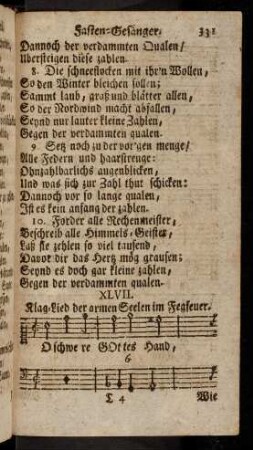 Fasten-Gesänger. 331
Dannoch der verdammten Qualen/
Ubersteigen diese zahlen.
8. Die schneeflocken mit ihr'n Wollen,
So den Winter bleichen sollen;
Sammt laub, graß und blätter allen,
So der Nordwind macht abfallen,
Seynd nur lauter kleine Zahlen,
Gegen der verdammten qualen.
9. Setz noch zu der vor'gen menge/
Alle Federn und haarstrenge:
Ohnzahlbarlichs augenblicken,
Und was sich zur Zahl thut schicken:
Dannoch vor so lange qualen,
Ist es kein anfang der zahlen.
10. Forder alle Rechenmeister,
Beschreib alle Himmels-Geister,
Laß sie zehlen so viel tausend,
Davor dir das Hertz mög grausen;
Seynd es doch gar kleine zahlen,
Gegen der verdammten qualen.
XLVII.
Klag-Lied der armen Seelen im Fegfeuer.
O schwe re GOt tes Hand,
6
L 4 Wie